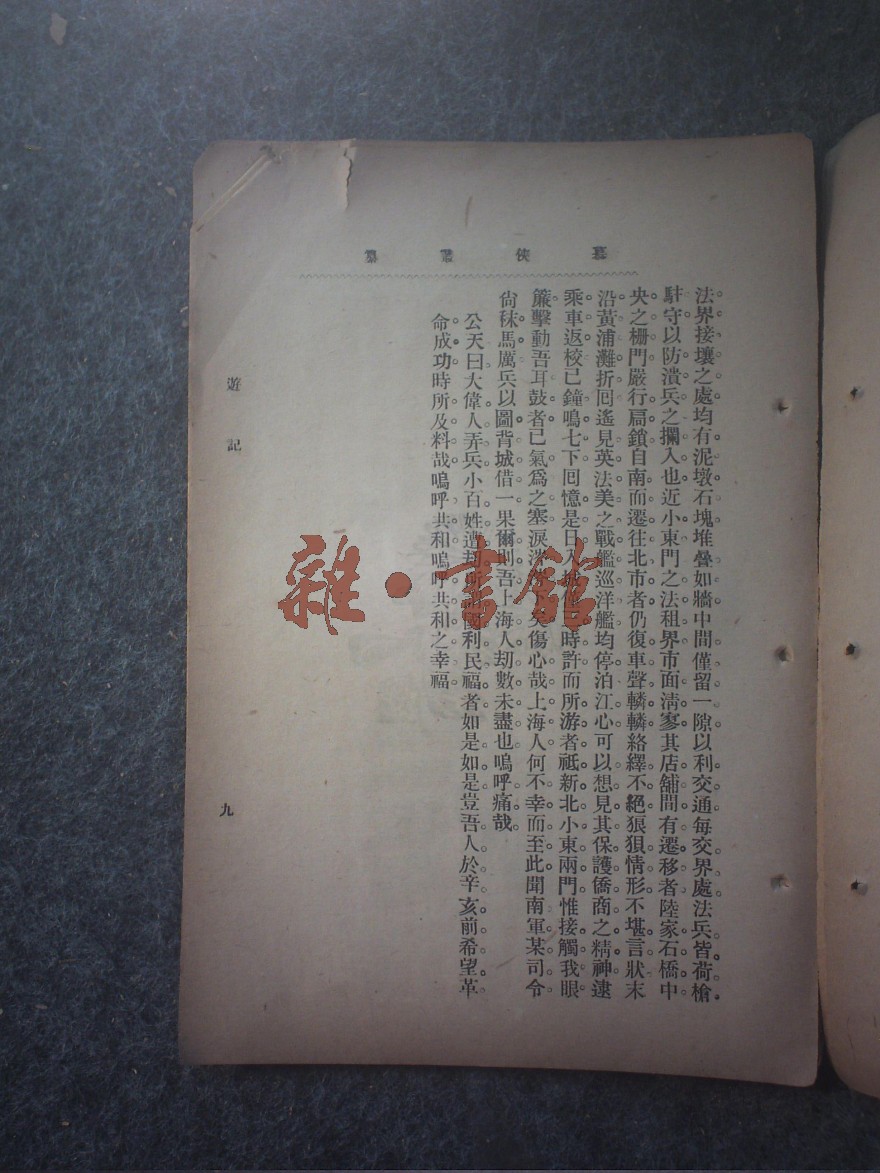 慕俠叢纂
法界接壤之處均有泥墩石塊堆疊如牆中間僅留一隙以利交通每交界處法兵皆荷槍
駐守以防潰兵之攔入也近小東門之法租界市面淸寥其店舖間有遷移者陸家石橋中
央之柵門嚴行扃鎖自南而遷往北市者仍復車聲轔轔絡繹不絕狼狽情形不堪言狀末
沿黃浦灘折回遙見英法美之戰艦巡洋艦均停泊江心可以想見其保護僑商之精神逮
乘車返校已鐘鳴七下回憶是日入城僅時許而所游者祗新北小東兩門惟接觸我眼
簾擊動吾耳鼓者已氣爲之塞淚矣傷心哉上海人何不幸而至此聞南軍某司令
尙秣馬厲兵以圖背城借一果爾則吾上海人刧數未盡也嗚呼痛哉
公天曰大偉人弄兵小百姓遭刧所謂國利民福者如是如是豈吾人於辛亥前希望革
命成功時所及料哉嗚呼共和嗚呼共和之幸福
遊記
九
雜·書館